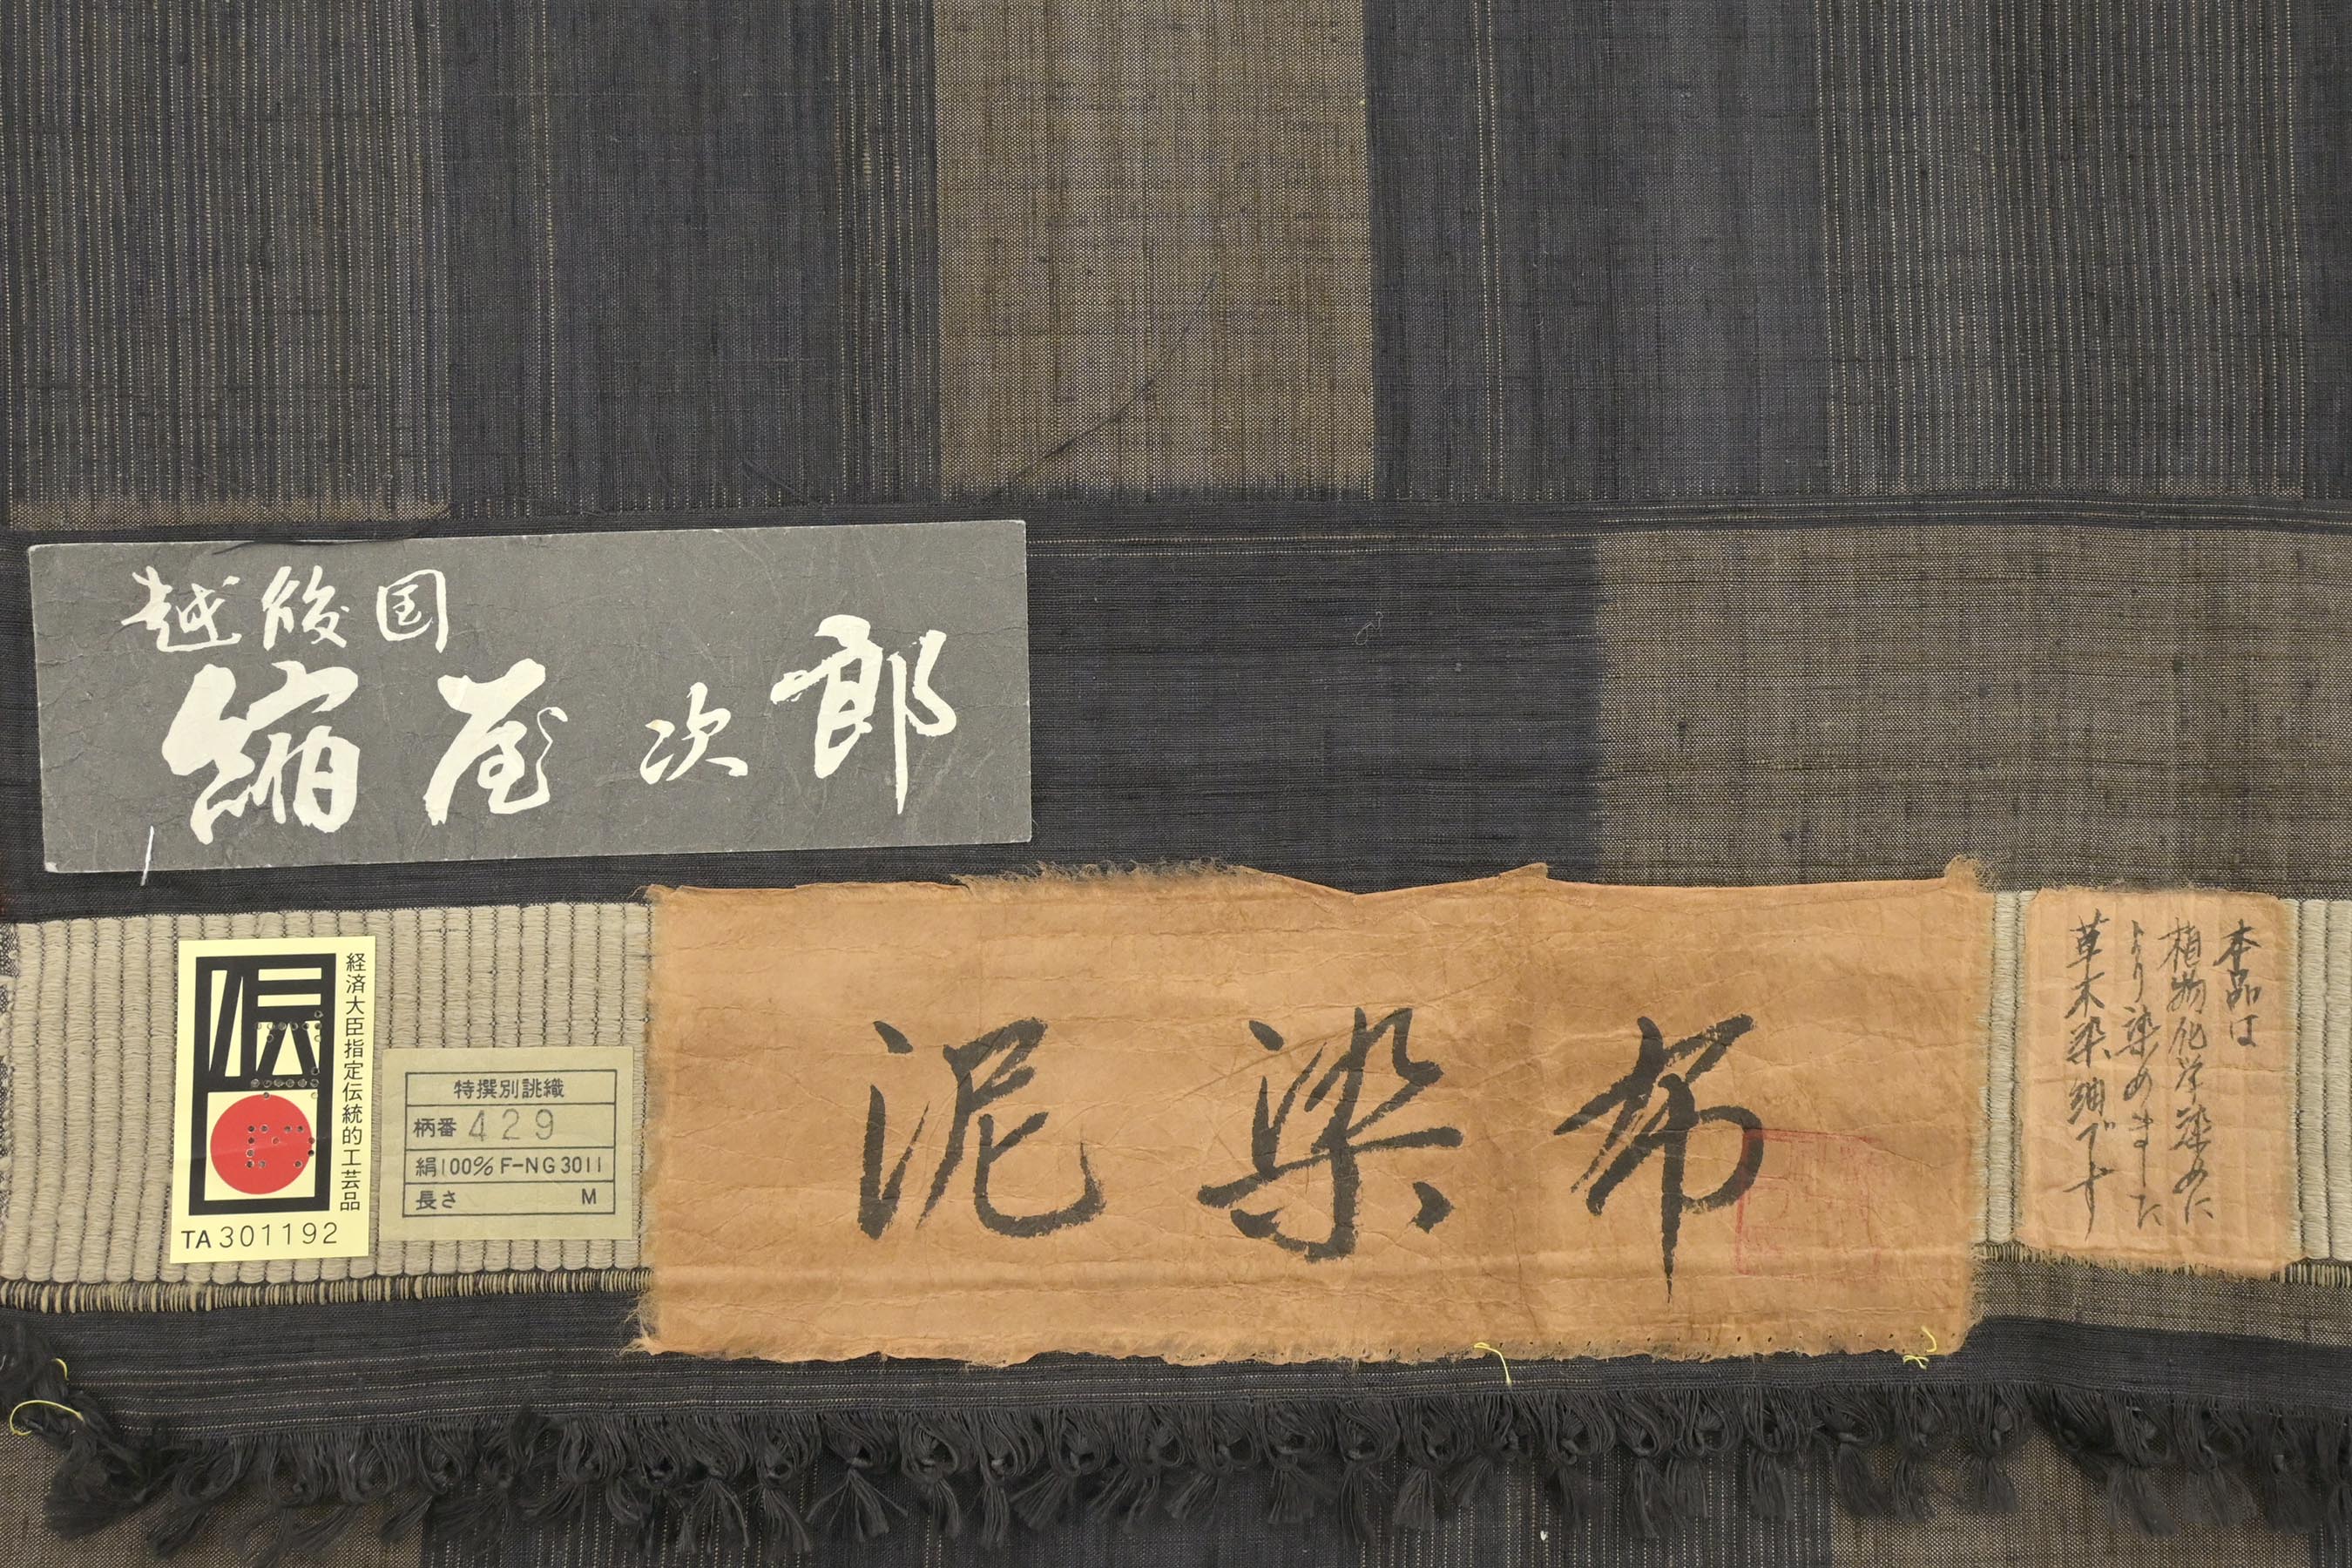 越後国
縮屋次郎
伝
経済大臣指定伝統的工芸品
TA301192
特撰別誂織
柄番 429
絹100% F-NG3011
長さ M
泥染布
本品は
植物化学染めに
より染めました
草木染紬です